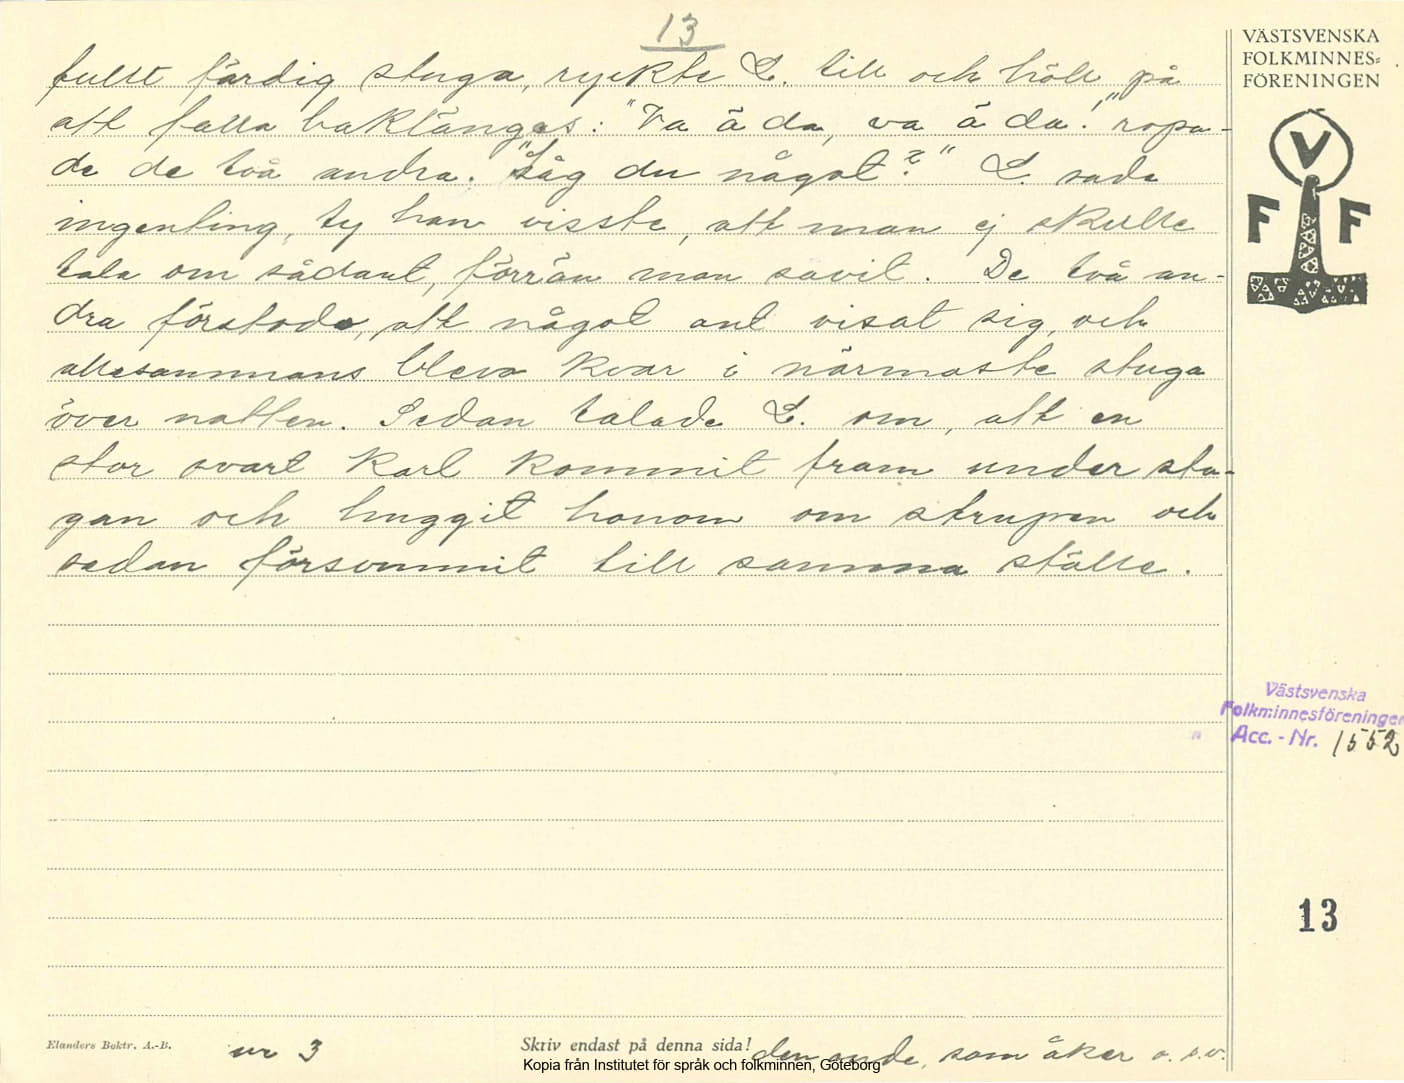 13
fullt färdig stuga, ryckte L. till och höll på
att falla baklänges: "Va ä da, va ä da!" ropa-
de de två andra. "Såg du något?" L. sade
ingenting, ty han visste, att man ej skulle
tala om sådant, förrän man sovit. De två an-
dra förstodo, att något ont visat sig, och
allesammans blevo kvar i närmaste stuga
över natten. Sedan talade L. om, att en
stor svart karl kommit fram under stu-
gan och huggit honom om strupen och
sedan försvunnit till samma ställe.
VÄSTSVENSKA
FOLKMINNES-
FÖRENINGEN
V
F F
Västsvenska
Folkminnesföreningen
Acc.-Nr. 1552
13
Elanders Boktr. A.-B.
nr 3
Skriv endast på denna sida!
den onde, som åker o.s.v.
Kopia från Institutet för språk och folkminnen, Göteborg